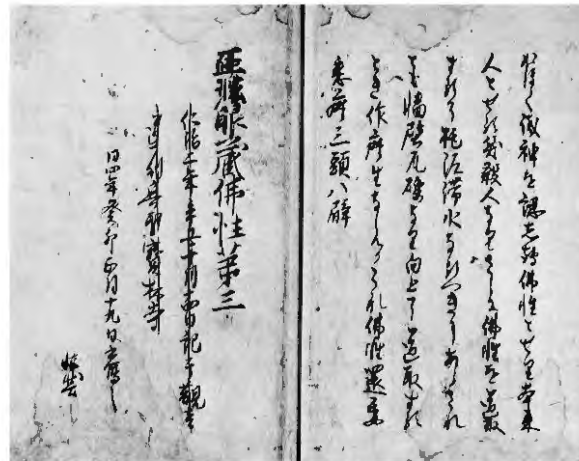 おほく識神を認して佛性とせり本来
人とせる笑殺人なりさらに佛性を道取
するに拕泥滞水なるへきにあらされ
とも牆壁瓦礫なり向上に道取する
とき作麼生ならんかこれ佛性還委
悉麼三頭八臂
正法眼蔵佛性第三
仁治二年辛丑十月十四日記于觀音
導利興聖寳林寺
同四年癸卯正月十九日書寫之
懐弉